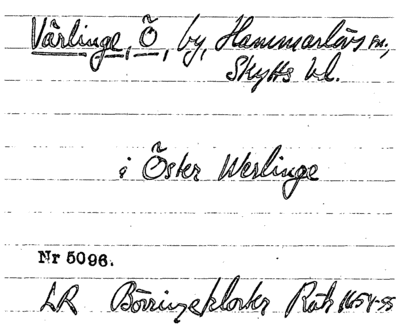 Värlinge, Ö, by, Hammarlövs sn.,
Skytts hd.
i Öster Werlinge
Nr 5096.
LR Börringekloster Räk 1654-55